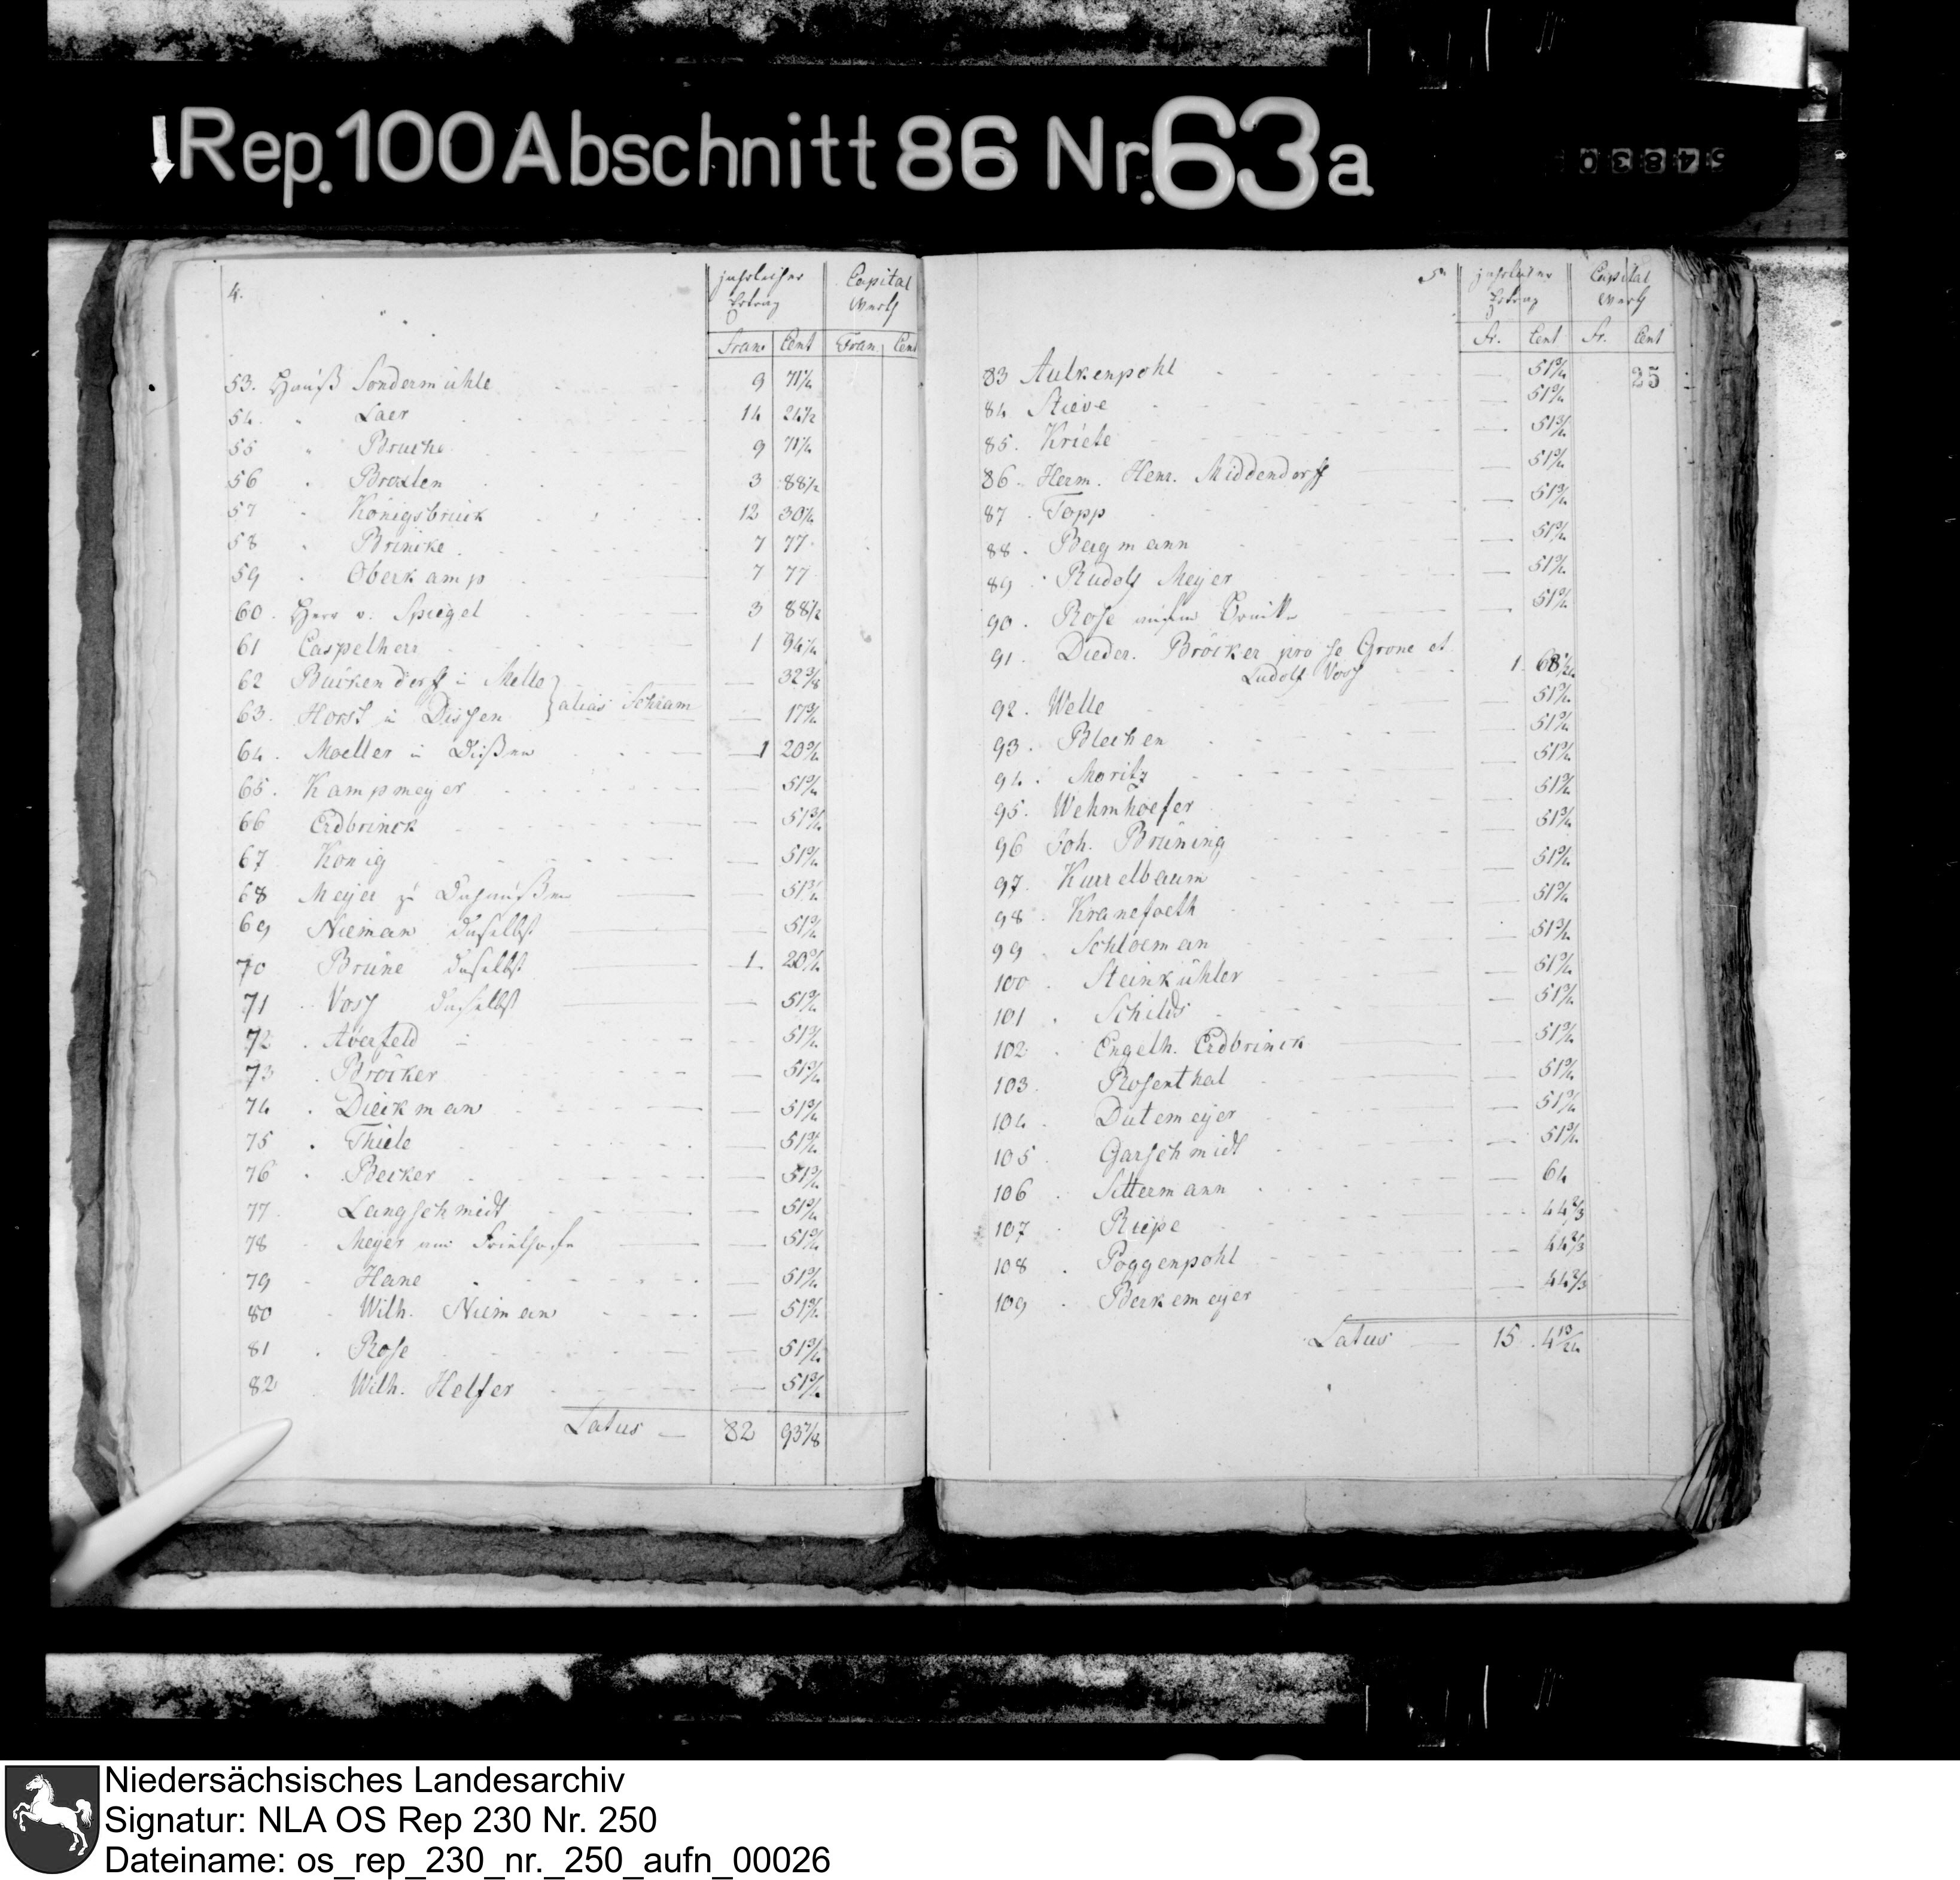 Rep. 100 Abschnitt 86 Nr. 63a
54830
4.
jährlicher Ertrag Capital Werth
Fran. Cent Fran. Cent
53. Hauß Sondermühle 9 71¼
54. " Laer 14 24½
55 " Bruche 9 71¼
56 " Broxten 3 88½
57 " Königsbrück 12 30¼
58 " Brincke 7 77
59 " Oberkamp 7 77
60. Herr v. Spiegel 3 88½
61 Caspelherr 1 94¼
62 Buckendorff in Melle — 32⅜
63. Horst in Dissen } alias Schram — 17
64. Moeller in Dißen 1 20
65. Kampmeyer — 51
66 Erdbrinck — 51
67 Konig — 51
68 Meyer zu — 51
69 Nieman daselbst — 51
70 Brüne daselbst 1. 20
71 Voss daselbst — 51
72 Averfeld — 51
73 Bröcker — 51
74 Dieckman — 51
75 Thiele — 51
76 Becker — 51
77 Langschmidt — 51
78 Meyer am — 51
79 Hane — 51
80 Wilh. Nieman — 51
81 Rose — 51
82 Wilh. Helfer — 51
Latus — 82 93⅞
5
jährlicher Ertrag Capital Werth
Fr. Cent Fr. Cent
25
83 Aulkenpohl — 51
84 Stieve — 51
85. Kriete — 51
86. Herm. Henr. Middendorff — 51
87. Topp — 51
88. Bergmann — 51
89. Rudolf Meyer — 51
90. Rose — 51
91. Dieder. Bröcker pro se Grone et
Ludolf Voss 1. 68
92. Welle — 51
93. Blechen — 51
94. Moritz — 51
95. Wehmhoefer — 51
96 Joh. Brüning — 51
97. Kurrelbaum — 51
98. Kranefoeth — 51
99. Schloeman — 51
100. Steinkühler — 51
101. Schilds — 51
102. Engelh. Erdbrinck — 51
103. Rosenthal — 51
104. Dutemeyer — 51
105. Garschmidt — 51
106. Sittermann — 64
107. Riepe — 44⅔
108. Poggenpohl — 44⅔
109. Berkemeyer — 44⅔
Latus — 15. 4 13/24
Niedersächsisches Landesarchiv
Signatur: NLA OS Rep 230 Nr. 250
Dateiname: os_rep_230_nr._250_aufn_00026